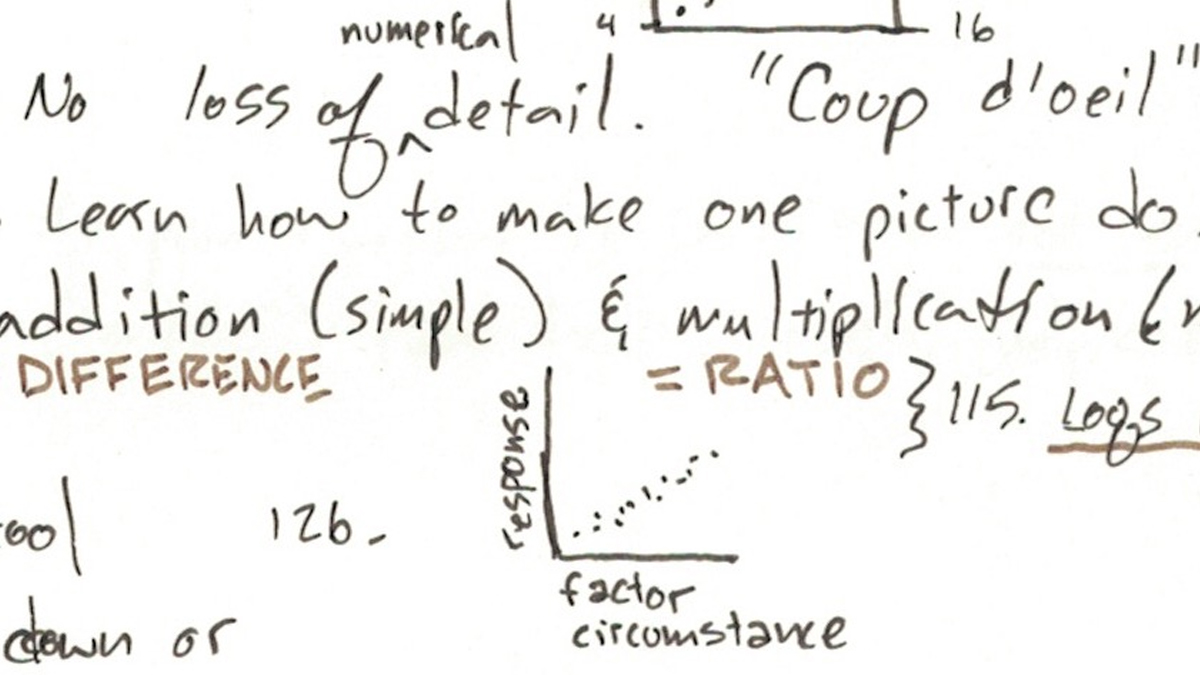 numerical 4 16
No loss of ^ detail. "Coup d'oeil"
Learn how to make one picture do
addition (simple) & multiplication (
DIFFERENCE = RATIO } 115. Logs
response
126.
factor
down or circumstance